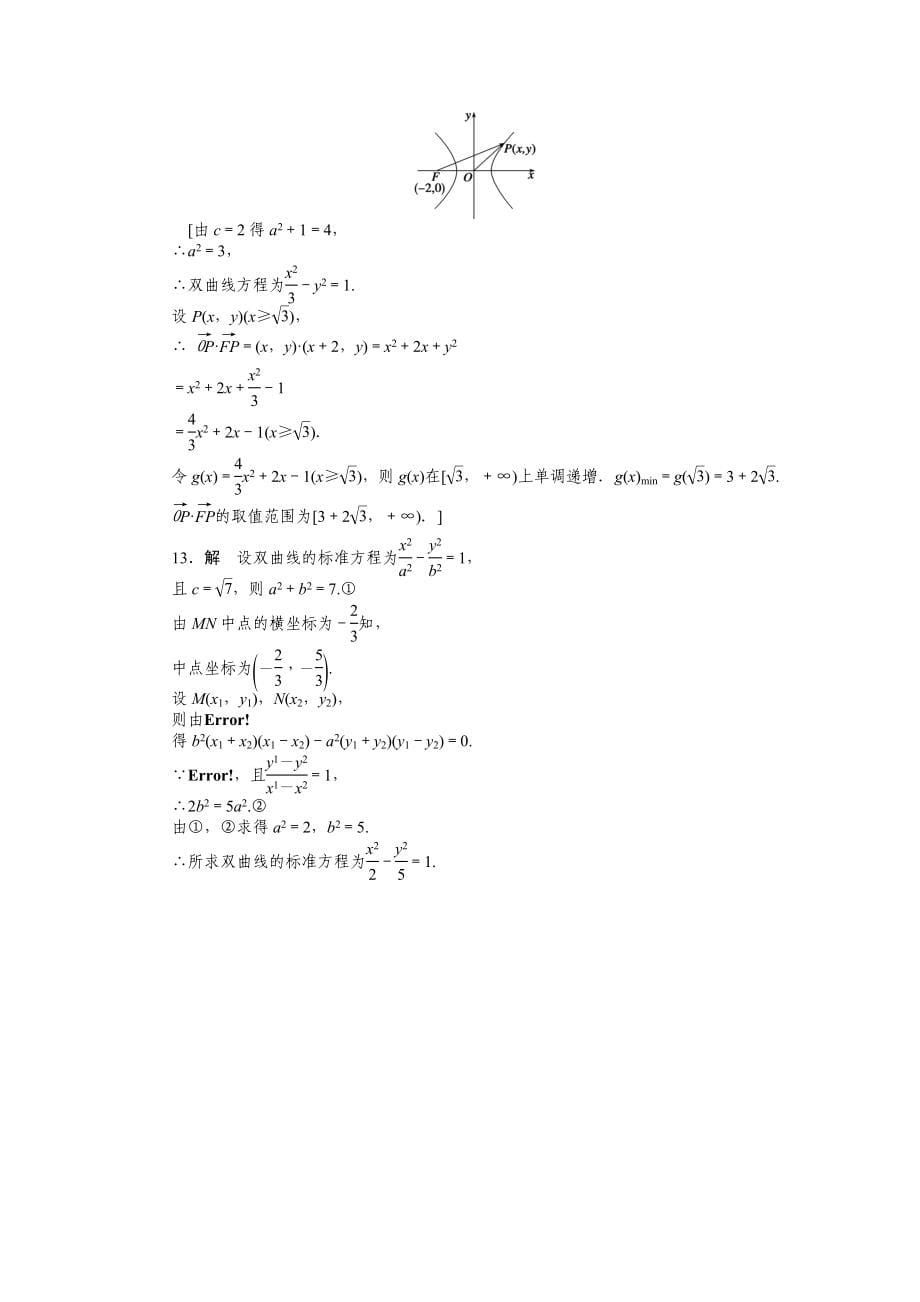 y
P(x,y)
F O x
(-2,0)
[由 c=2 得 a²+1=4,
∴a²=3,
∴双曲线方程为x²/3-y²=1.
设 P(x,y)(x≥√3),
∴ OP→·FP→=(x,y)·(x+2,y)=x²+2x+y²
=x²+2x+x²/3-1
=4/3x²+2x-1(x≥√3).
令 g(x)=4/3x²+2x-1(x≥√3),则 g(x)在[√3,+∞)上单调递增.g(x)min=g(√3)=3+2√3.
OP→·FP→的取值范围为[3+2√3,+∞).]
13.解 设双曲线的标准方程为x²/a²-y²/b²=1,
且 c=√7,则 a²+b²=7.①
由 MN 中点的横坐标为-2/3知,
中点坐标为(-2/3,-5/3).
设 M(x₁,y₁),N(x₂,y₂),
则由Error!
得 b²(x₁+x₂)(x₁-x₂)-a²(y₁+y₂)(y₁-y₂)=0.
∵Error!,且y1-y2/x1-x2=1,
∴2b²=5a².②
由①,②求得 a²=2,b²=5.
∴所求双曲线的标准方程为x²/2-y²/5=1.